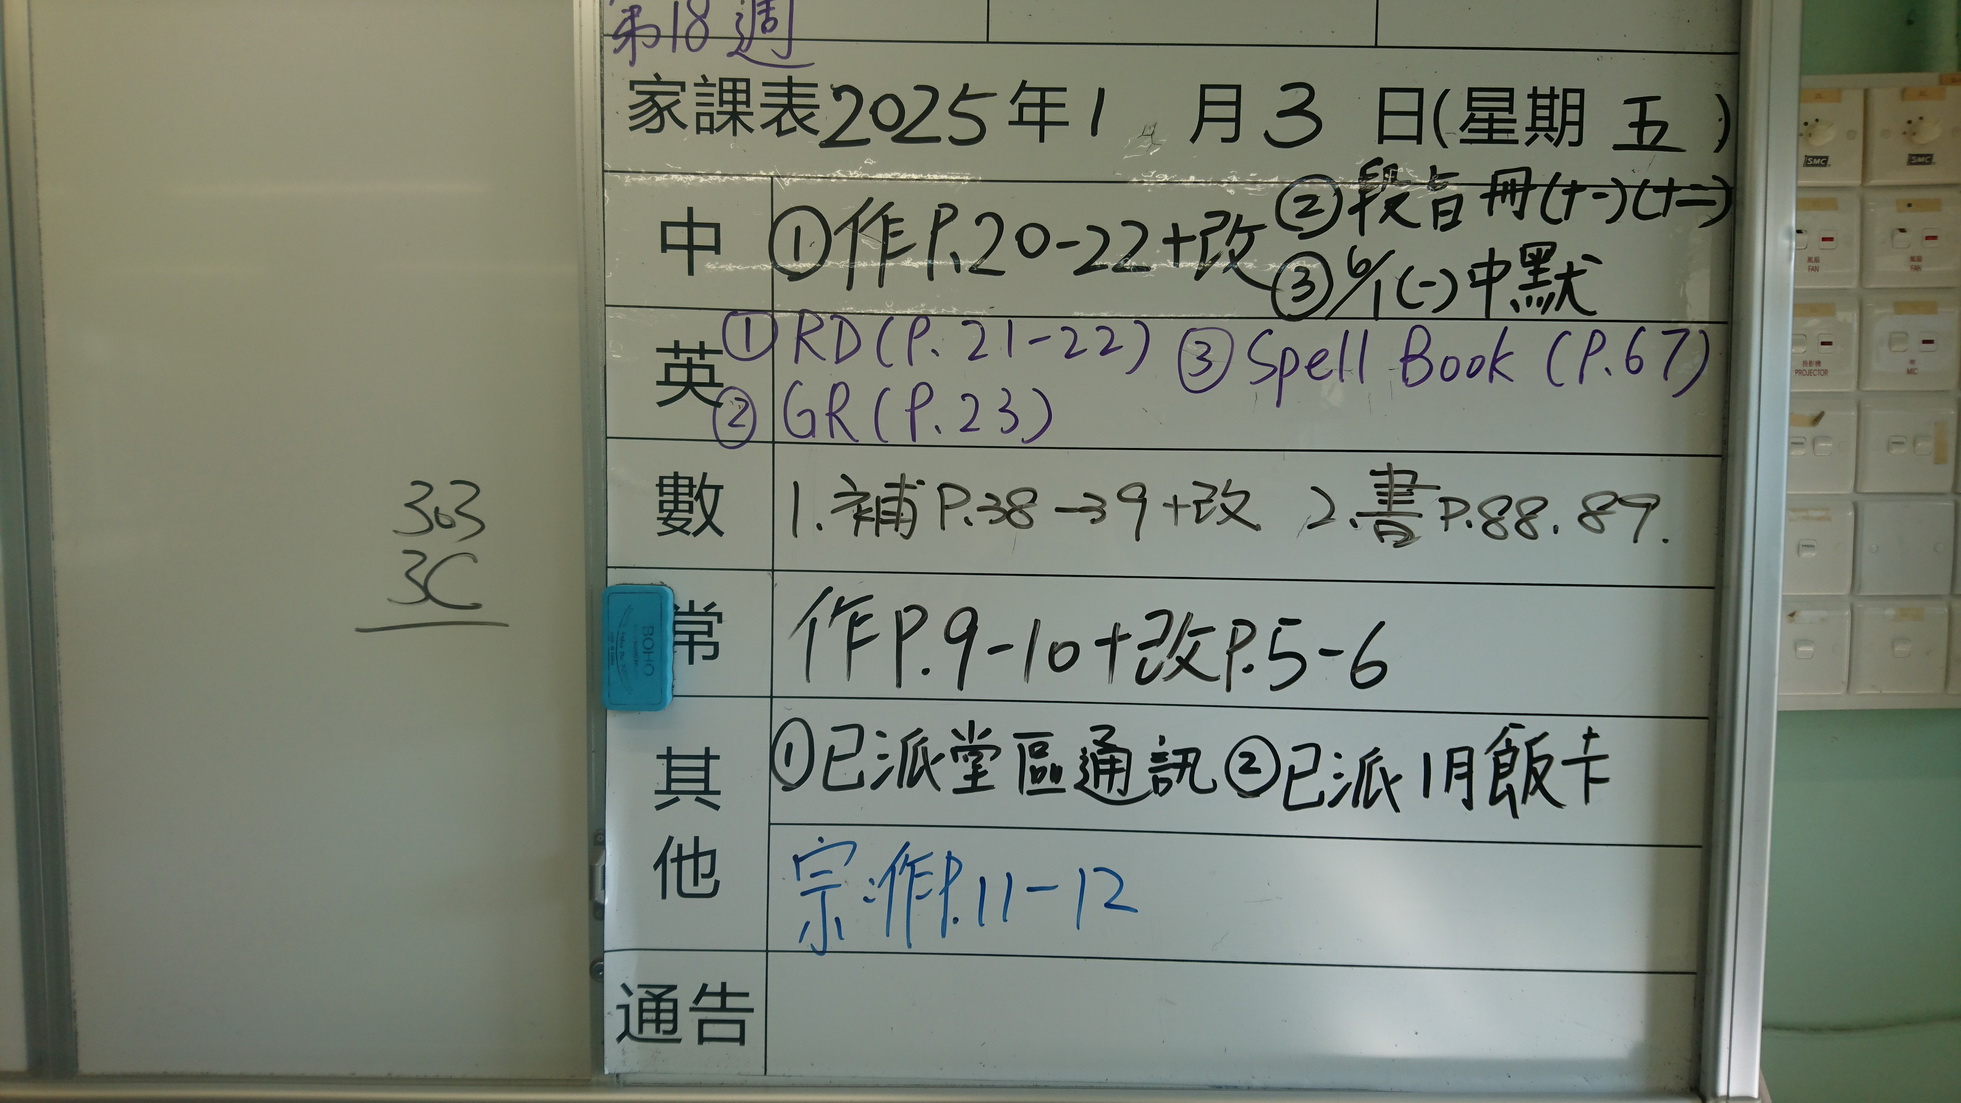 第18週
家課表2025年1月3日(星期五)
中 ①作P.20-22+改 ②段旨冊(十一)(十二)
③6/1(一)中默
英 ①RD(P.21-22) ③Spell Book (P.67)
②GR(P.23)
數 1.補P.38→39+改 2.書P.88.89.
常 作P.9-10+改P.5-6
其他 ①已派堂區通訊②已派1月飯卡
宗:作P.11-12
通告
303
3C
BOHO
SMC
SMC
FAN
FAN
PROJECTOR
MIC